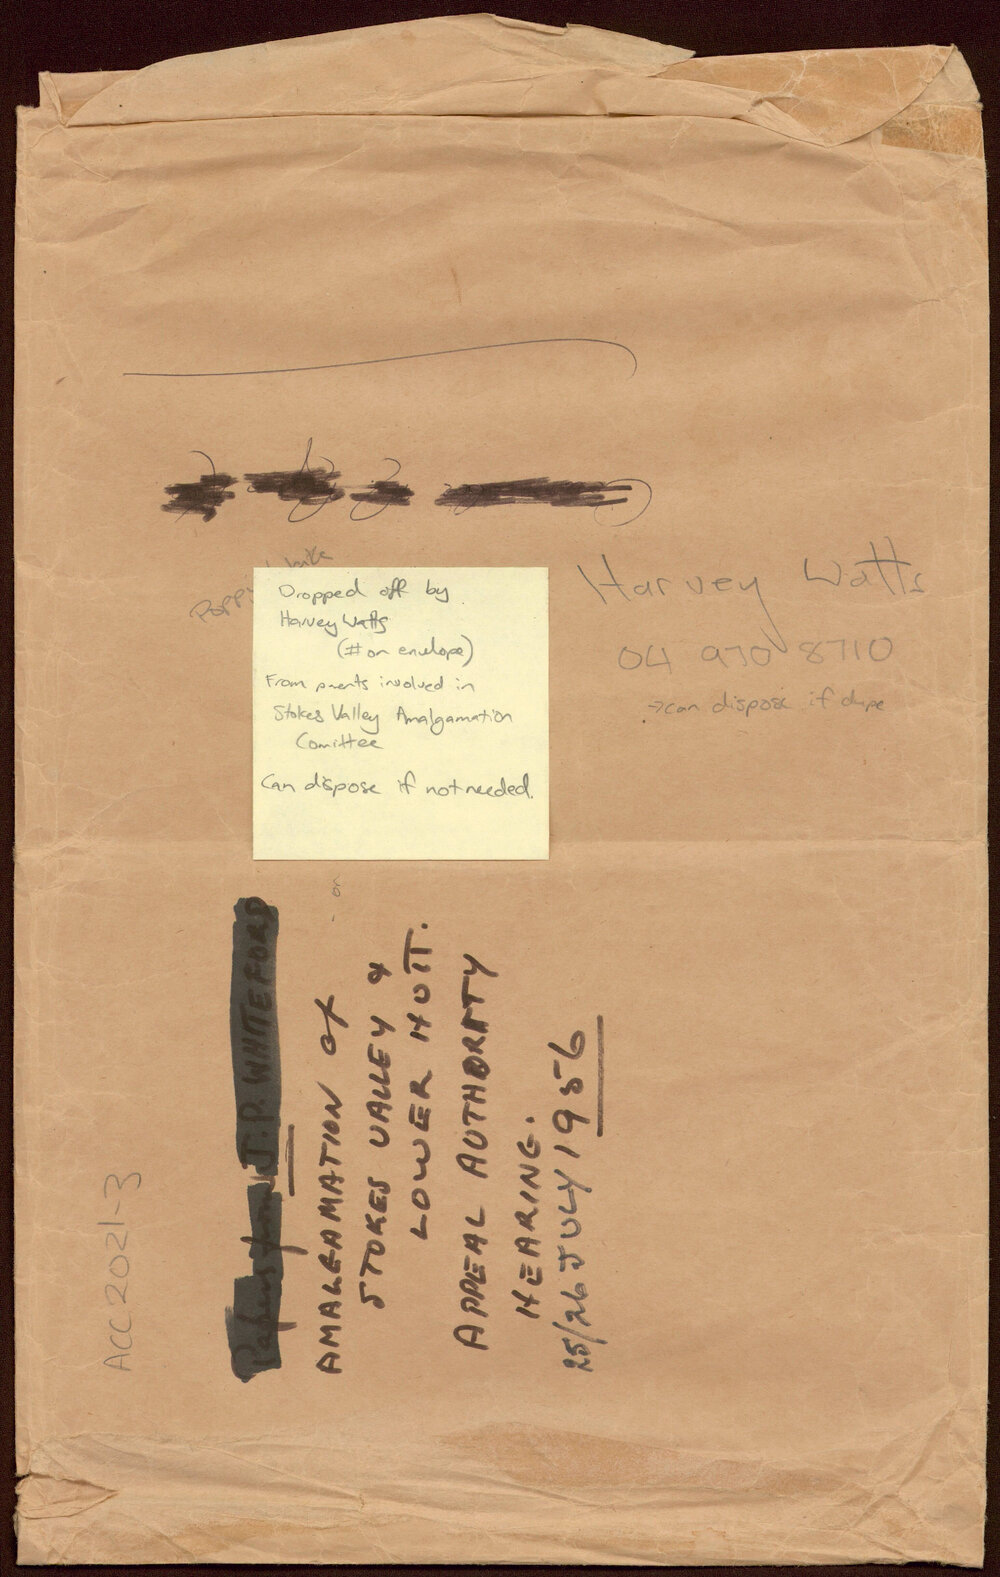 Harvey Watts
04 970 8710
→can dispose if dupe
Dropped off by
Harvey Watts
(# on envelope)
From parents involved in
Stokes Valley Amalgamation
Comittee
Can dispose if not needed.
Papers from J.P. WHITEFORD
AMALGAMATION of
STOKES VALLEY &
LOWER HUTT.
APPEAL AUTHORITY
HEARING.
25/26 JULY 1956
ACC2021-3